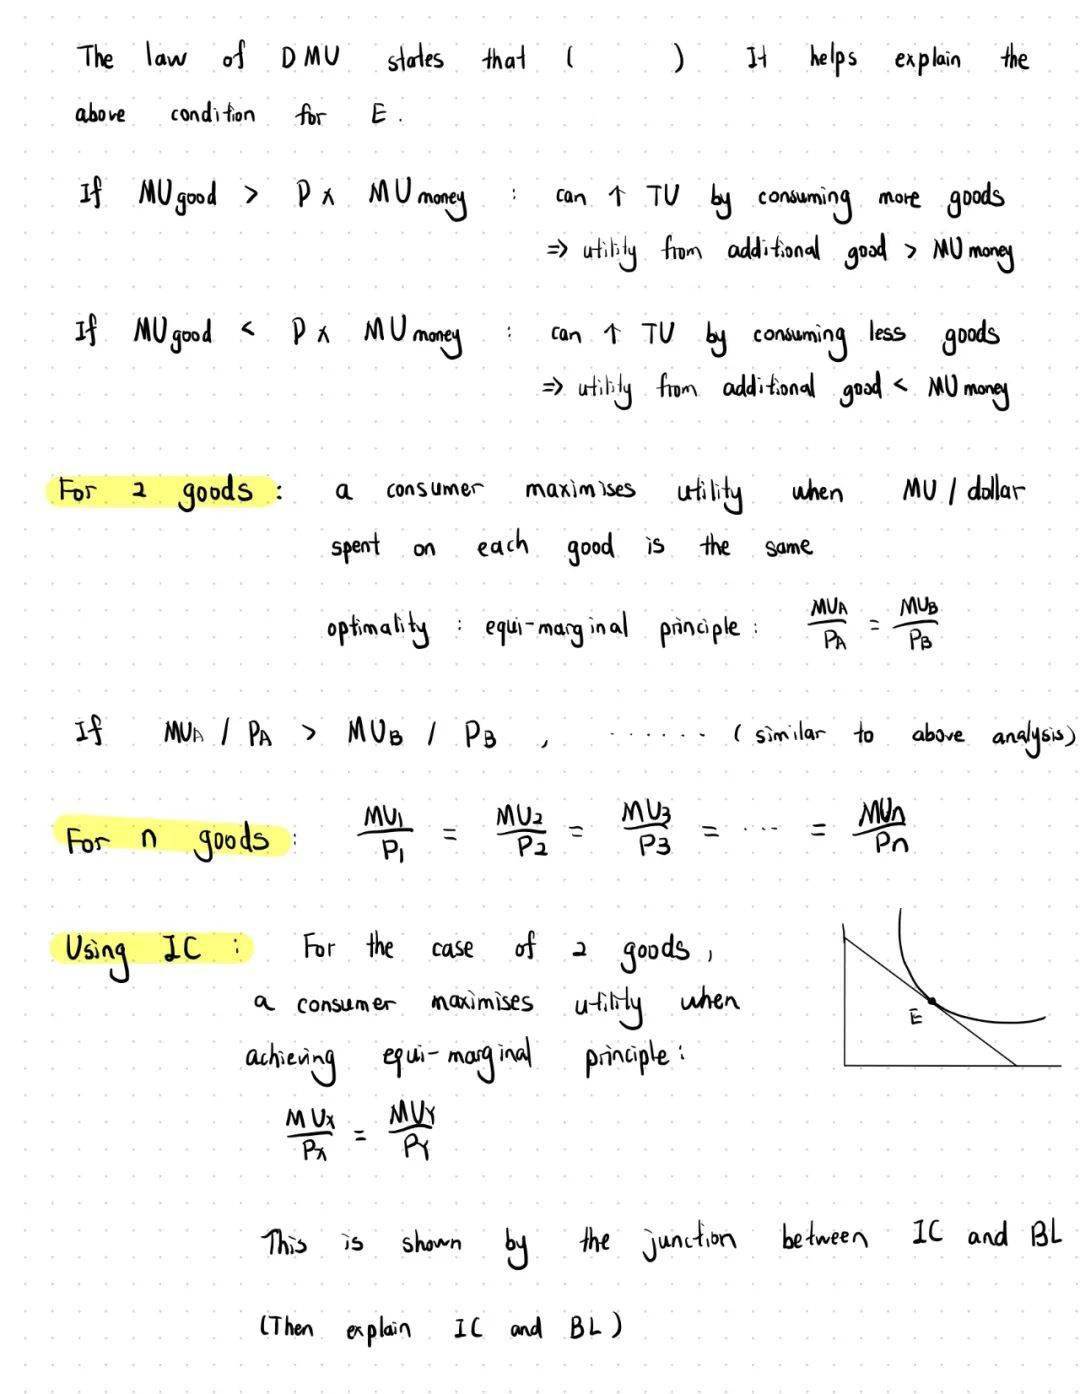 The law of DMU states that (          ) It helps explain the
above condition for E.
If MU good > P x MU money : can ↑ TU by consuming more goods
⇒ utility from additional good > MU money
If MU good < P x MU money : can ↑ TU by consuming less goods
⇒ utility from additional good < MU money
For 2 goods : a consumer maximises utility when MU / dollar
spent on each good is the same
optimality : equi-marginal principle : MUA/PA = MUB/PB
If MUA / PA > MUB / PB , ······· (similar to above analysis)
For n goods : MU1/P1 = MU2/P2 = MU3/P3 = ··· = MUn/Pn
Using IC : For the case of 2 goods,
a consumer maximises utility when
achieving equi-marginal principle :
E
MUx/Px = MUY/PY
This is shown by the junction between IC and BL
(Then explain IC and BL)